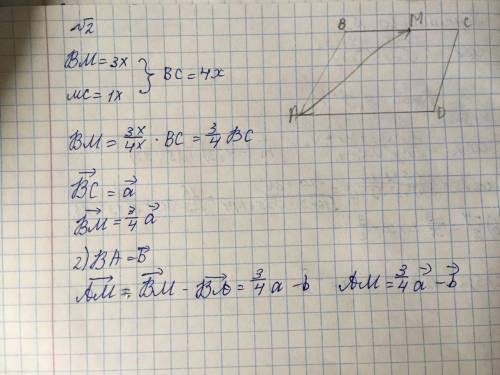 №2
BM = 3x
MC = 1x } BC = 4x
BM = 3x/4x · BC = 3/4 BC
B͞C⃗ = a⃗
BM⃗ = 3/4 a⃗
2) BA = b⃗
AM⃗ = BM⃗ - BA⃗ = 3/4 a - b AM = 3/4 a⃗ - b⃗
B M C
A D